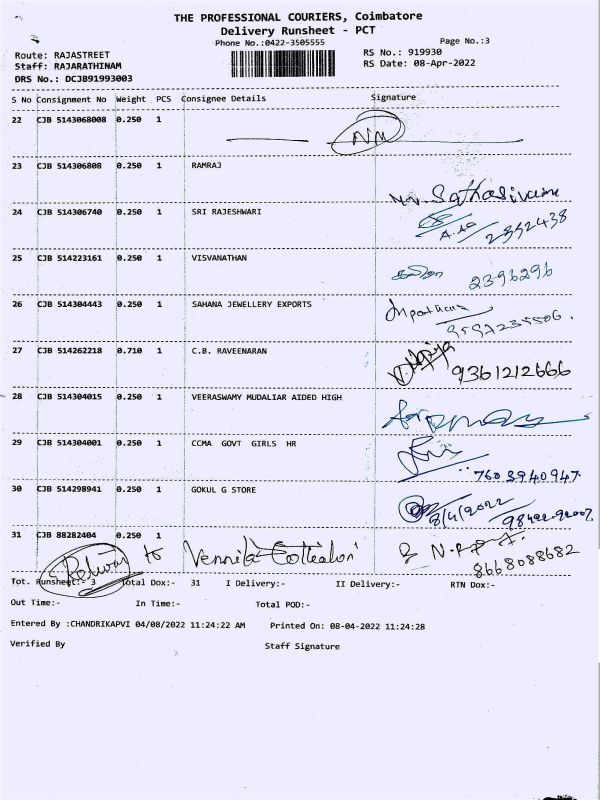 THE PROFESSIONAL COURIERS, Coimbatore
Delivery Runsheet - PCT
Phone No.:0422-3505555
Page No.:3
Route: RAJASTREET
RS No.: 919930
Staff: RAJARATHINAM
RS Date: 08-Apr-2022
DRS No.: DCJB91993003
S No Consignment No Weight PCS Consignee Details Signature
22 CJB 5143068008 0.250 1
23 CJB 514306808 0.250 1 RAMRAJ
Sathasivam
24 CJB 514306740 0.250 1 SRI RAJESHWARI
2392438
25 CJB 514223161 0.250 1 VISVANATHAN
2396296
26 CJB 514304443 0.250 1 SAHANA JEWELLERY EXPORTS
9597235506.
27 CJB 514262218 0.710 1 C.B. RAVEENARAN
9361212666
28 CJB 514304015 0.250 1 VEERASWAMY MUDALIAR AIDED HIGH
29 CJB 514304001 0.250 1 CCMA GOVT GIRLS HR
7603940947
30 CJB 514298941 0.250 1 GOKUL G STORE
8/4/2022
31 CJB 88282404 0.250 1
to Vennila
8668088682
Tot. Runsheet:- 3 Total Dox:- 31 I Delivery:- II Delivery:- RTN Dox:-
Out Time:- In Time:- Total POD:-
Entered By :CHANDRIKAPVI 04/08/2022 11:24:22 AM Printed On: 08-04-2022 11:24:28
Verified By Staff Signature